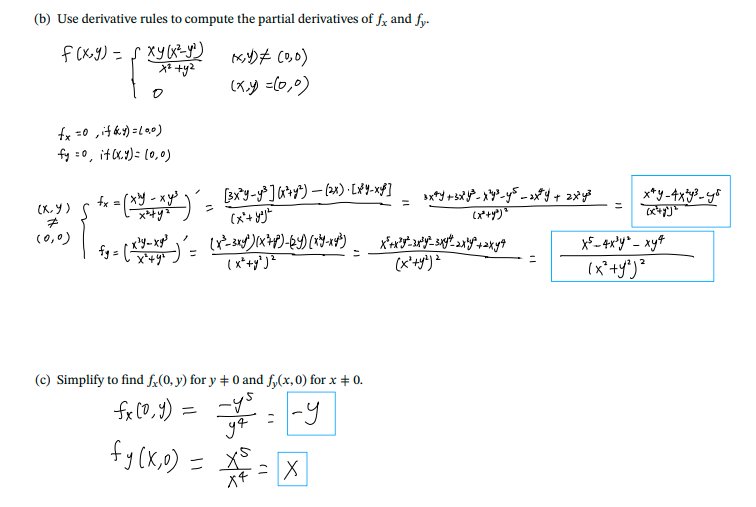 (b) Use derivative rules to compute the partial derivatives of fₓ and f_y.
f(x,y) = { xy(x²-y²) / x²+y² (x,y) ≠ (0,0)
0 (x,y) = (0,0)
fx = 0 , if (x,y) = (0,0)
fy = 0, if (x,y) = (0,0)
(x,y) ≠ (0,0) { fx = (x³y - xy³ / x²+y²)' = [3x²y-y³](x²+y²) - (2x)·[x³y-xy³] / (x²+y²)² = 3x⁴y+3x²y³-x²y³-y⁵-2x⁴y+2x²y³ / (x²+y²)² = x⁴y-4x²y³-y⁵ / (x²+y²)²
fy = (x³y-xy³ / x²+y²)' = (x³-3xy²)(x²+y²)-(2y)(x³y-xy³) / (x²+y²)² = x⁵+x³y²-3x³y²-3xy⁴-2x³y²+2xy⁴ / (x²+y²)² = x⁵-4x³y²-xy⁴ / (x²+y²)²
(c) Simplify to find fₓ(0, y) for y ≠ 0 and f_y(x, 0) for x ≠ 0.
fx(0,y) = -y⁵ / y⁴ = -y
fy(x,0) = x⁵ / x⁴ = x